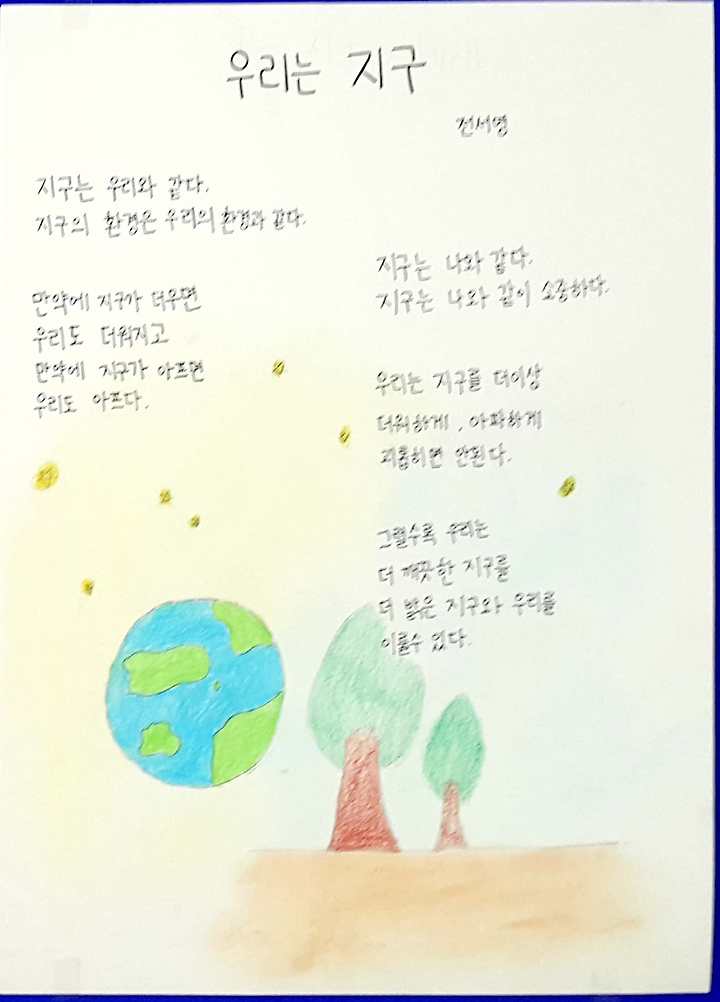 우리는 지구
전서영
지구는 우리와 같다.
지구의 환경은 우리의 환경과 같다.
만약에 지구가 더우면
우리도 더워지고
만약에 지구가 아프면
우리도 아프다.
지구는 나와 같다.
지구는 나와 같이 소중하다.
우리는 지구를 더이상
더워하게, 아파하게
괴롭히면 안된다.
그럴수록 우리는
더 깨끗한 지구를
더 밝은 지구와 우리를
이룰수 있다.